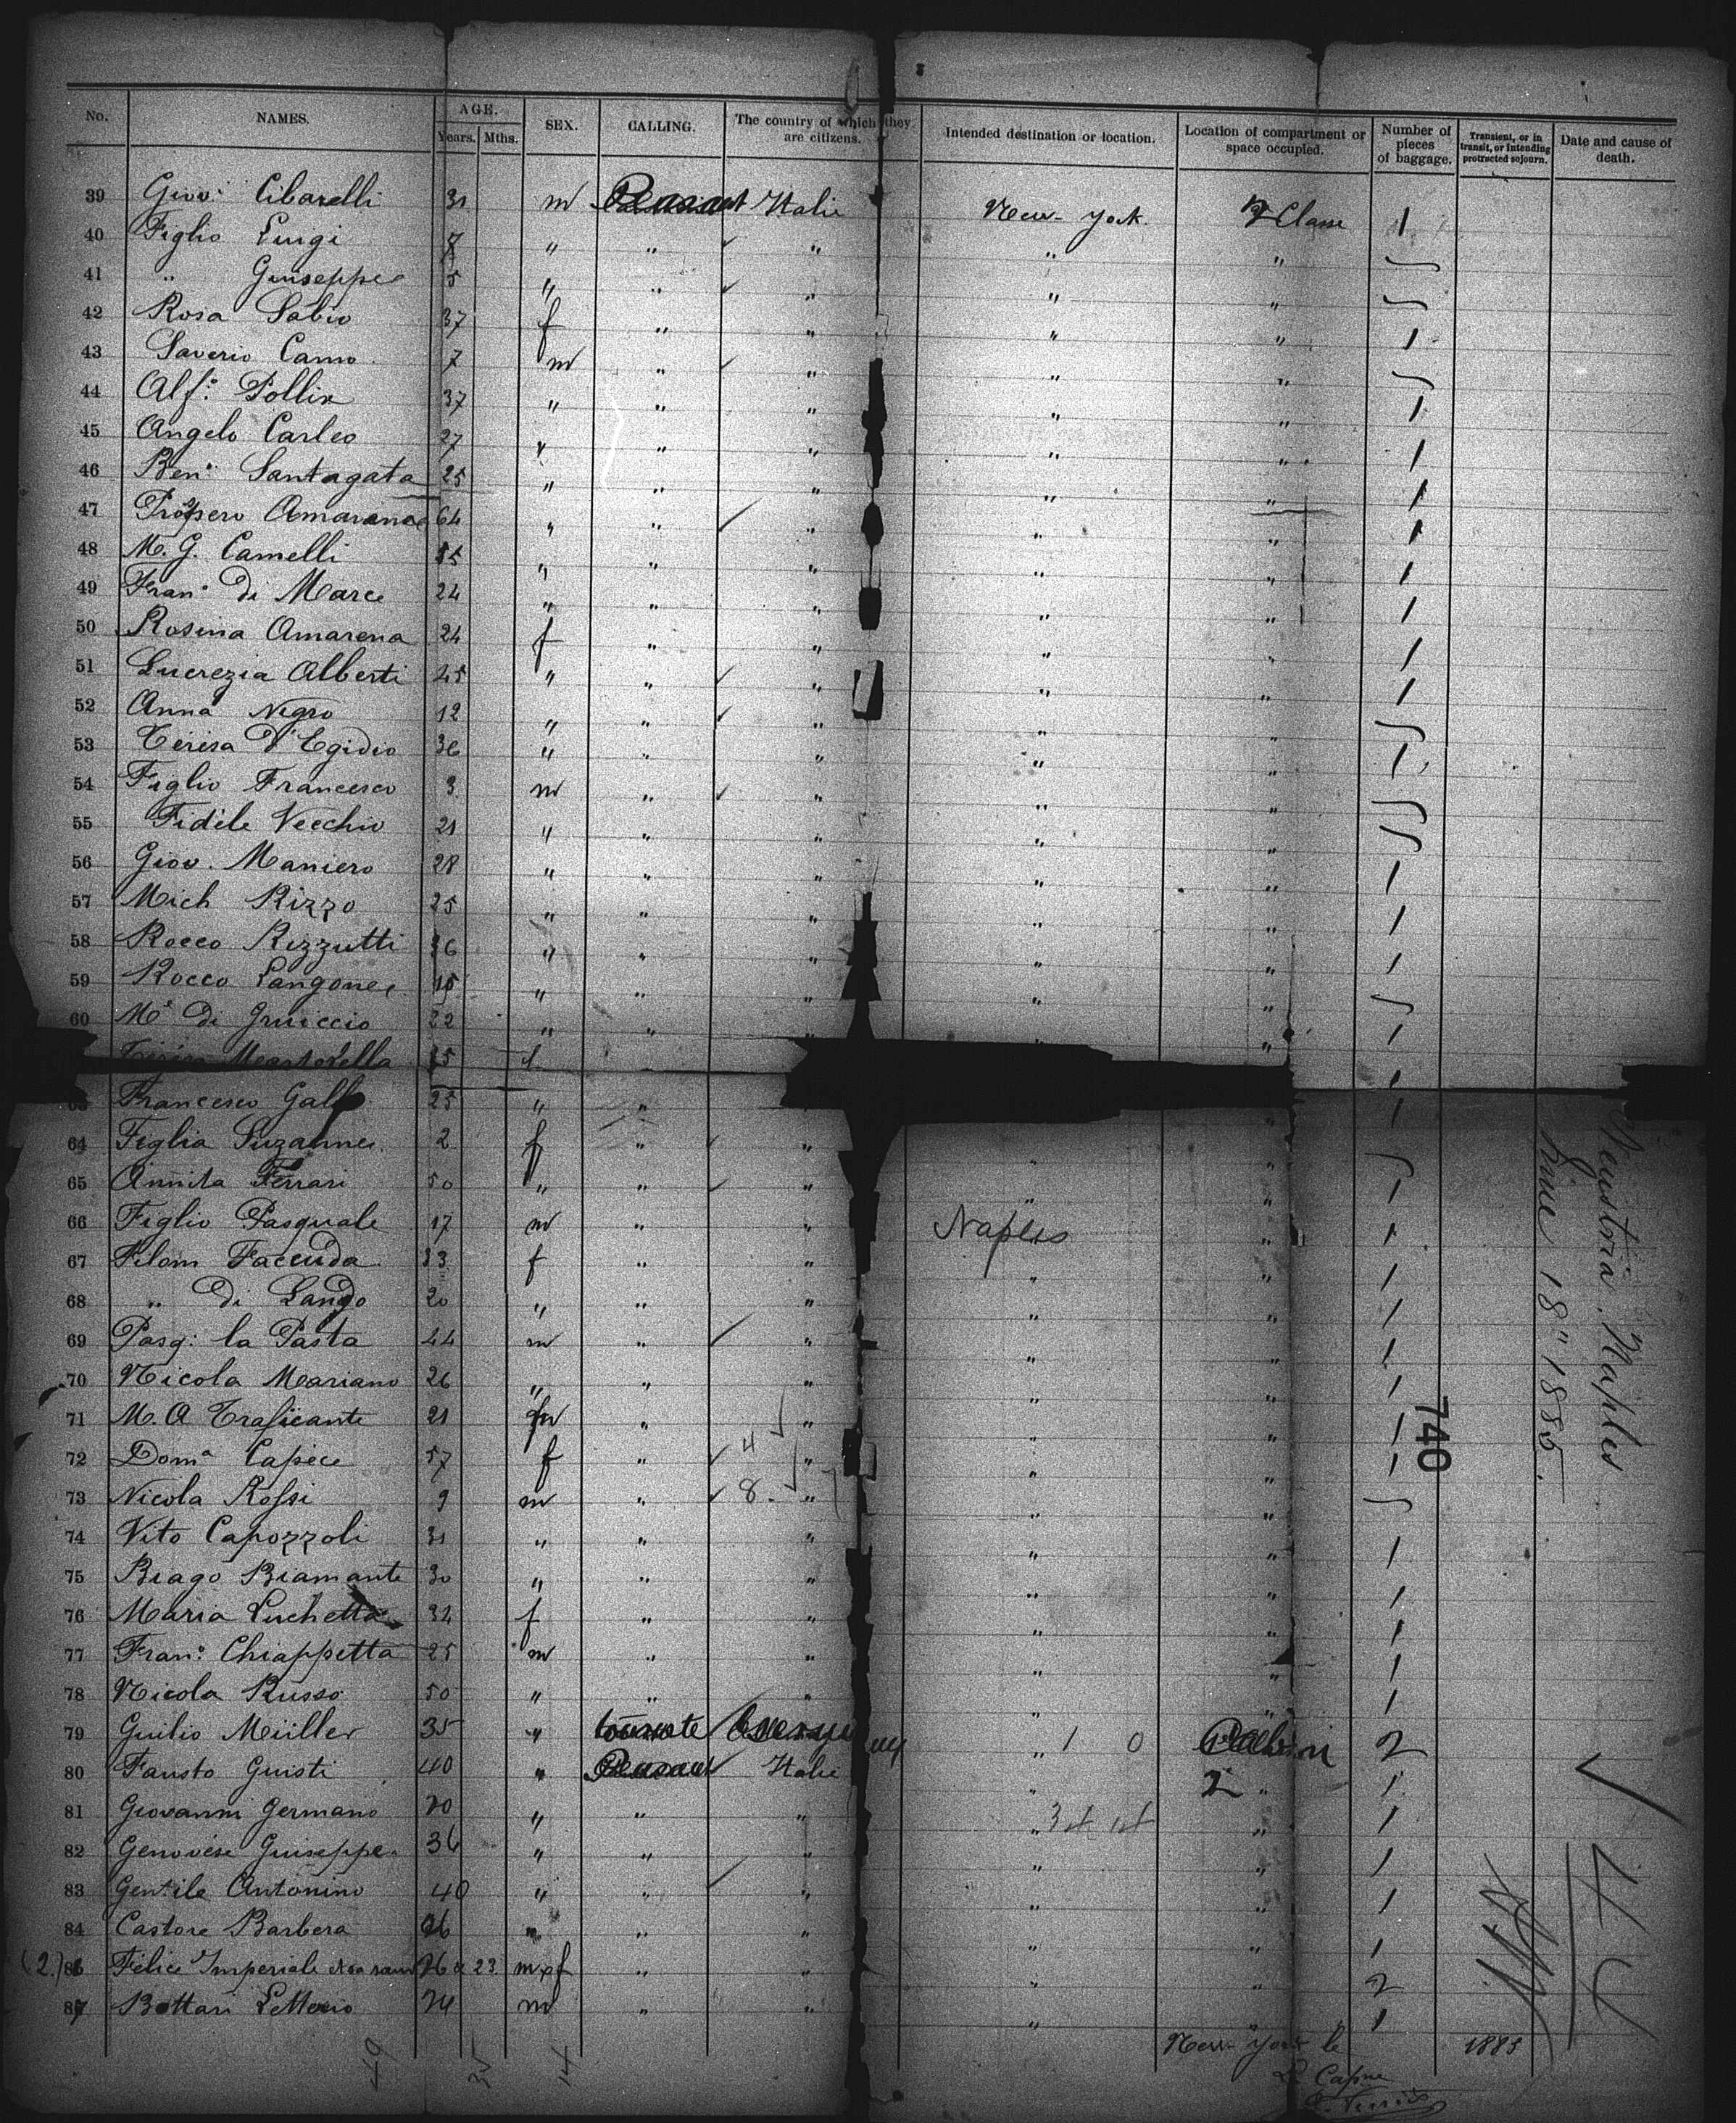 No. NAMES. AGE. Years. Mths. SEX. CALLING. The country of which they are citizens. Intended destination or location. Location of compartment or space occupied. Number of pieces of baggage. Transient, or in transit, or intending protracted sojourn. Date and cause of death.
39 Giov: Cibarelli 31 m Peasant Italie New-york. 2 Classe 1
40 Figlio Luigi 7 " " " " "
41 " Giuseppe 5 " " " " "
42 Rosa Sabio 37 f " " " " 1
43 Saverio Camo 7 m " " " "
44 Alf: Pollix 37 " " " " " 1
45 Angelo Carleo 27 " " " " " 1
46 Ben: Santagata 25 " " " " " 1
47 Prospero Amarena 64 " " " " " 1
48 M. G. Camelli 35 " " " " " 1
49 Fran: di Marce 24 " " " " " 1
50 Rosina Amarena 24 f " " " " 1
51 Lucrezia Alberti 45 " " " " " 1
52 Anna Nigro 12 " " " " "
53 Teresa D'Egidio 36 " " " " " 1
54 Figlio Francesco 3 m " " " "
55 Fidele Vecchio 21 " " " " "
56 Giov. Maniero 28 " " " " " 1
57 Mich Rizzo 25 " " " " " 1
58 Rocco Rizzutti 36 " " " " " 1
59 Rocco Langone 15 " " " " "
60 Ma di Gruiccio 22 " " " 1
25 f 1
Francesco Gallo 25 " " 1
64 Figlia Suzanne 2 f " " " "
65 Annita Ferrari 50 " " " " " 1
66 Figlio Pasquale 17 m " " Naples " 1
67 Filom Faccuda 33 f " " " " 1
68 " di Lando 20 " " " " " 1
69 Pasq: la Pasta 44 m " " " " 1
70 Nicola Mariano 26 " " " " " 1
71 M. A Traficante 21 m " " " " 1
72 Doma Capece 57 f " 4 " " " 1
73 Nicola Rossi 9 m " 8 " " "
74 Vito Capozzoli 31 " " " " " 1
75 Biago Biamante 30 " " " " " 1
76 Maria Luchetta 32 f " " " " 1
77 Fran: Chiappetta 25 m " " " " 1
78 Nicola Russo 50 " " " " 1
79 Guilio Müller 35 " touriste " 1 0 2
80 Fausto Guisti 40 " Peasant Italie " 2 " 1
81 Giovanni Germano 20 " " " " 34 14 " 1
82 Genovese Guiseppe 36 " " " " " 1
83 Gentile Antonino 40 " " " " " 1
84 Castore Barbera 26 " " " " " 1
(2.) 86 Felice Imperiale 26 & 23 m & f " " " " 2
87 Bottari Letterio 24 m " " " " 1
New york le 1885
Le Capne
49
25
14
Neustria. Naples
June 18" 1885.
740
44